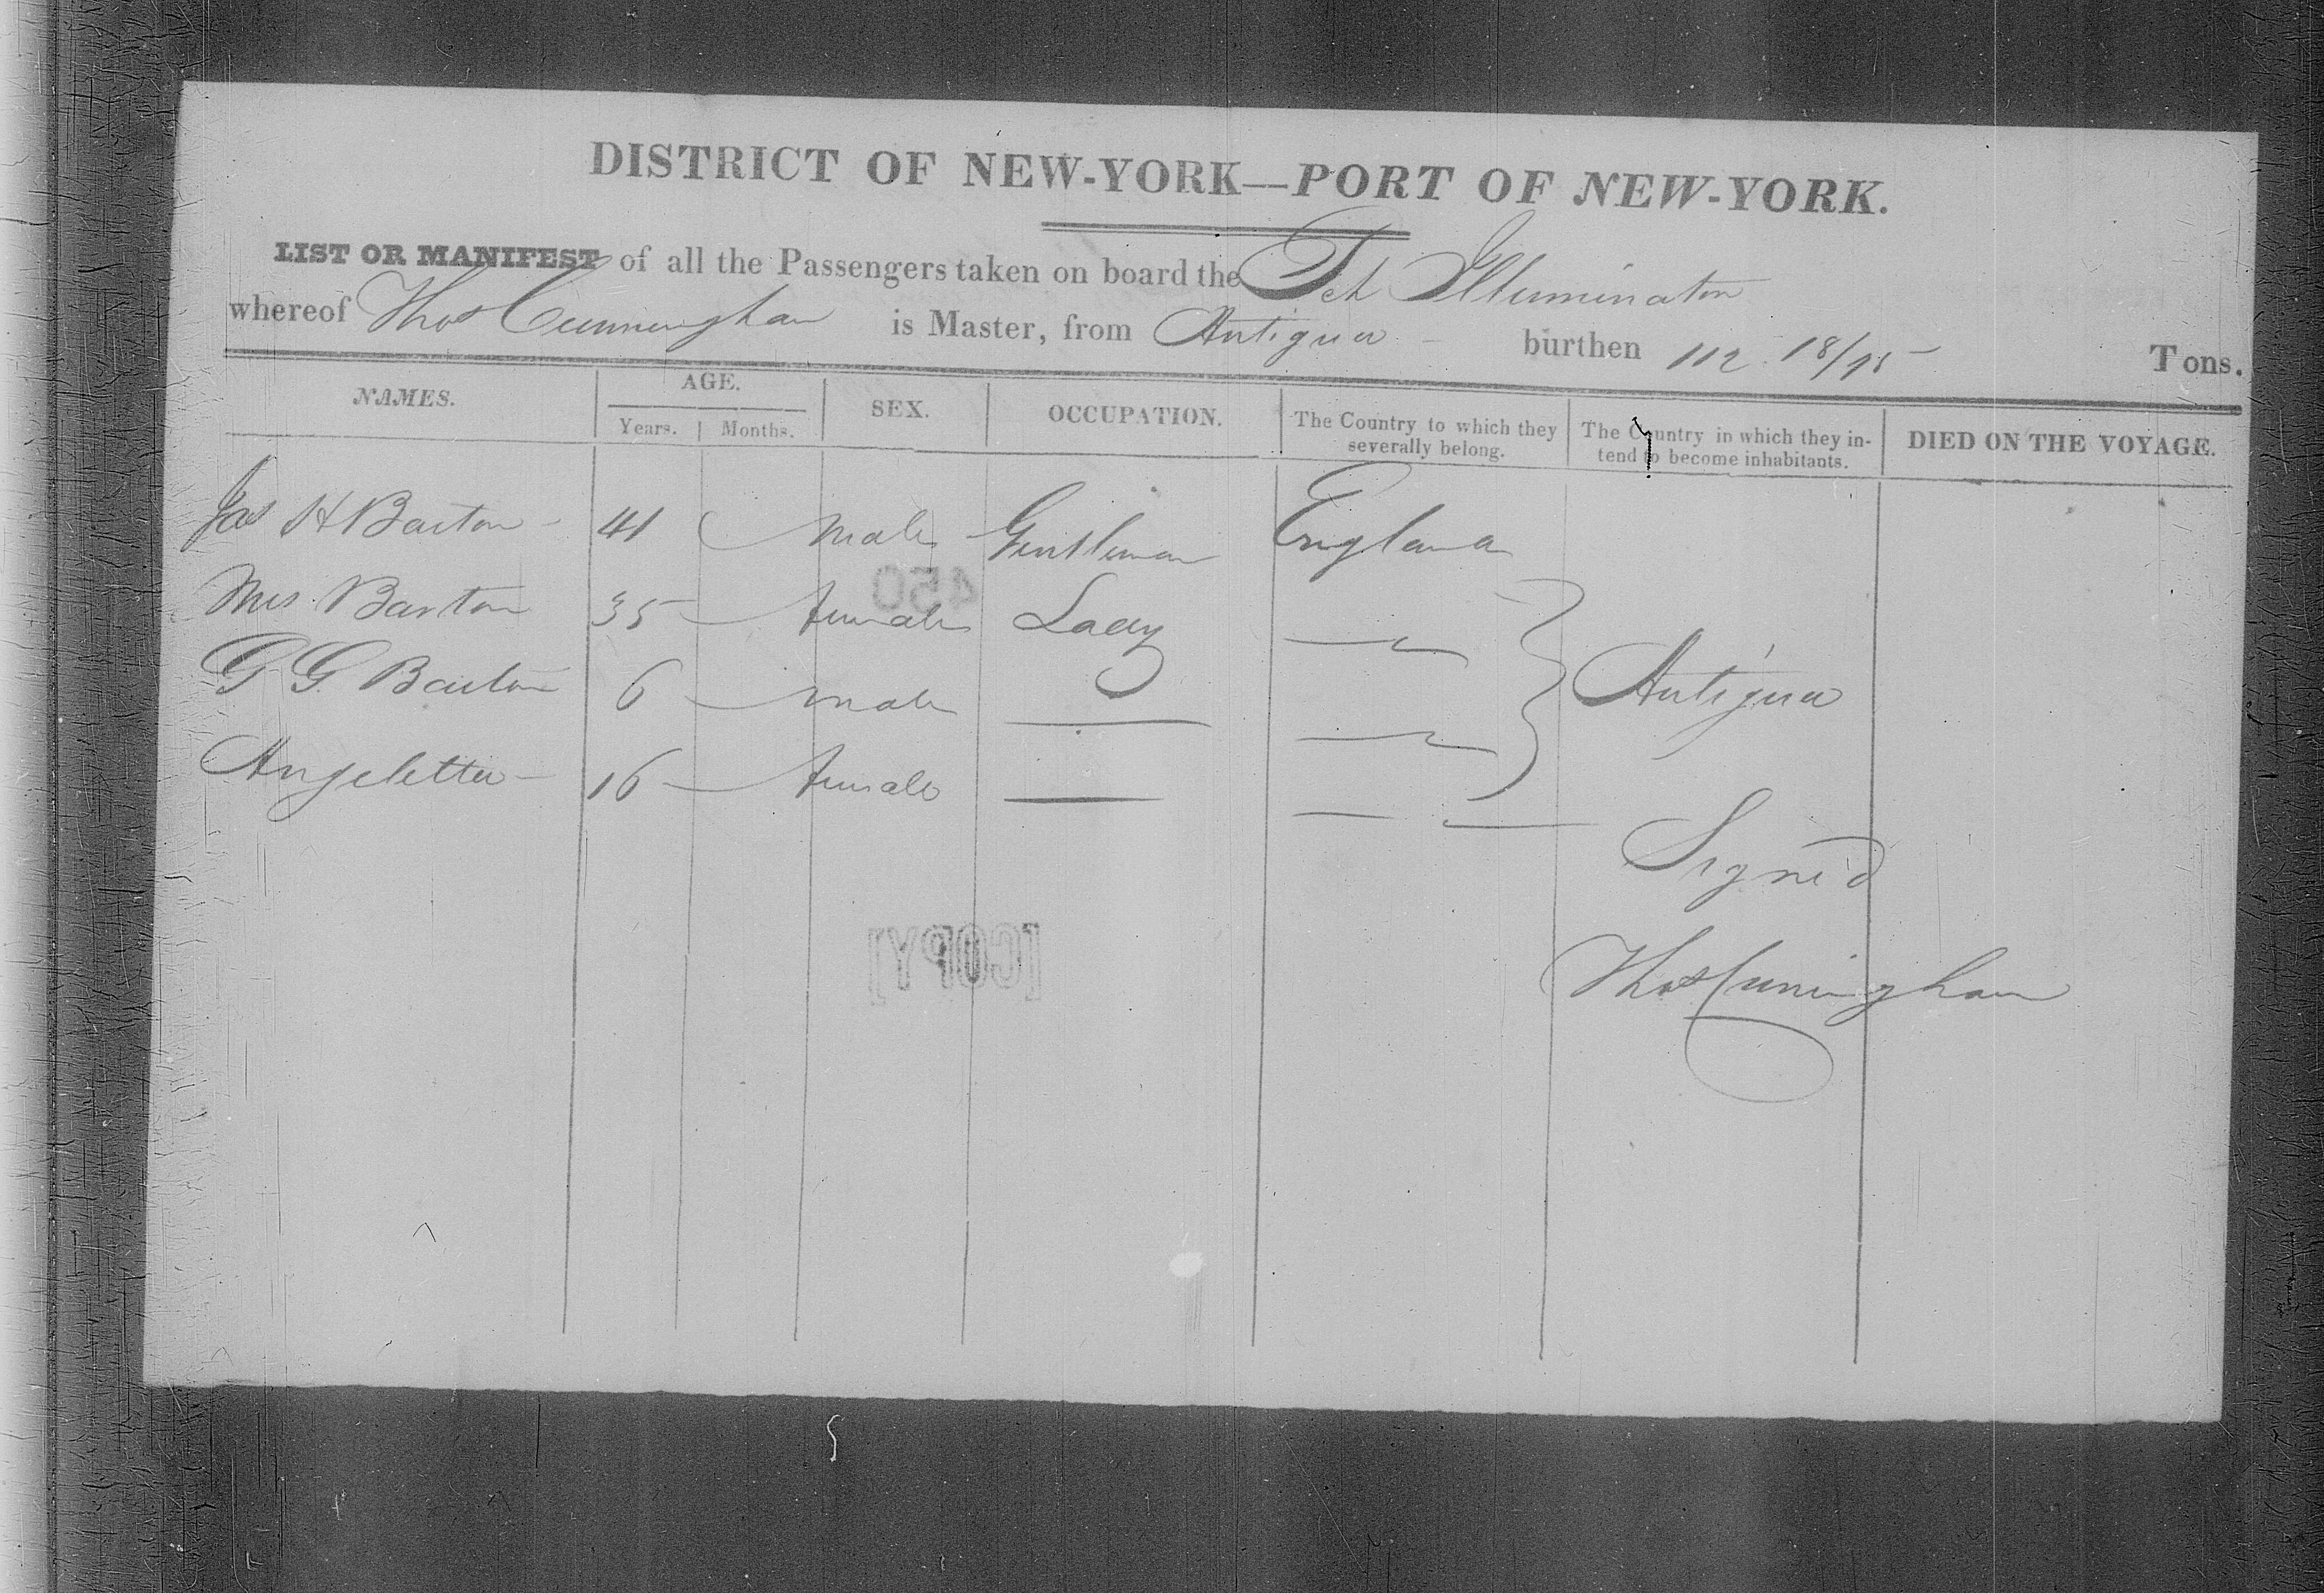 DISTRICT OF NEW-YORK—PORT OF NEW-YORK.
LIST OR MANIFEST of all the Passengers taken on board the Sch Illuminator
whereof Thos Cunningham is Master, from Antigua burthen 112 18/95 Tons.
NAMES. AGE. SEX. OCCUPATION. The Country to which they severally belong. The Country in which they in-tend to become inhabitants. DIED ON THE VOYAGE.
Years. Months.
Jas H Barton 41 Male Gentleman England
Mrs Barton 35 female Lady
450
G G Barton 6 male Antigua
Angeletta 16 female
Signed
[COPY]
Thos Cuningham